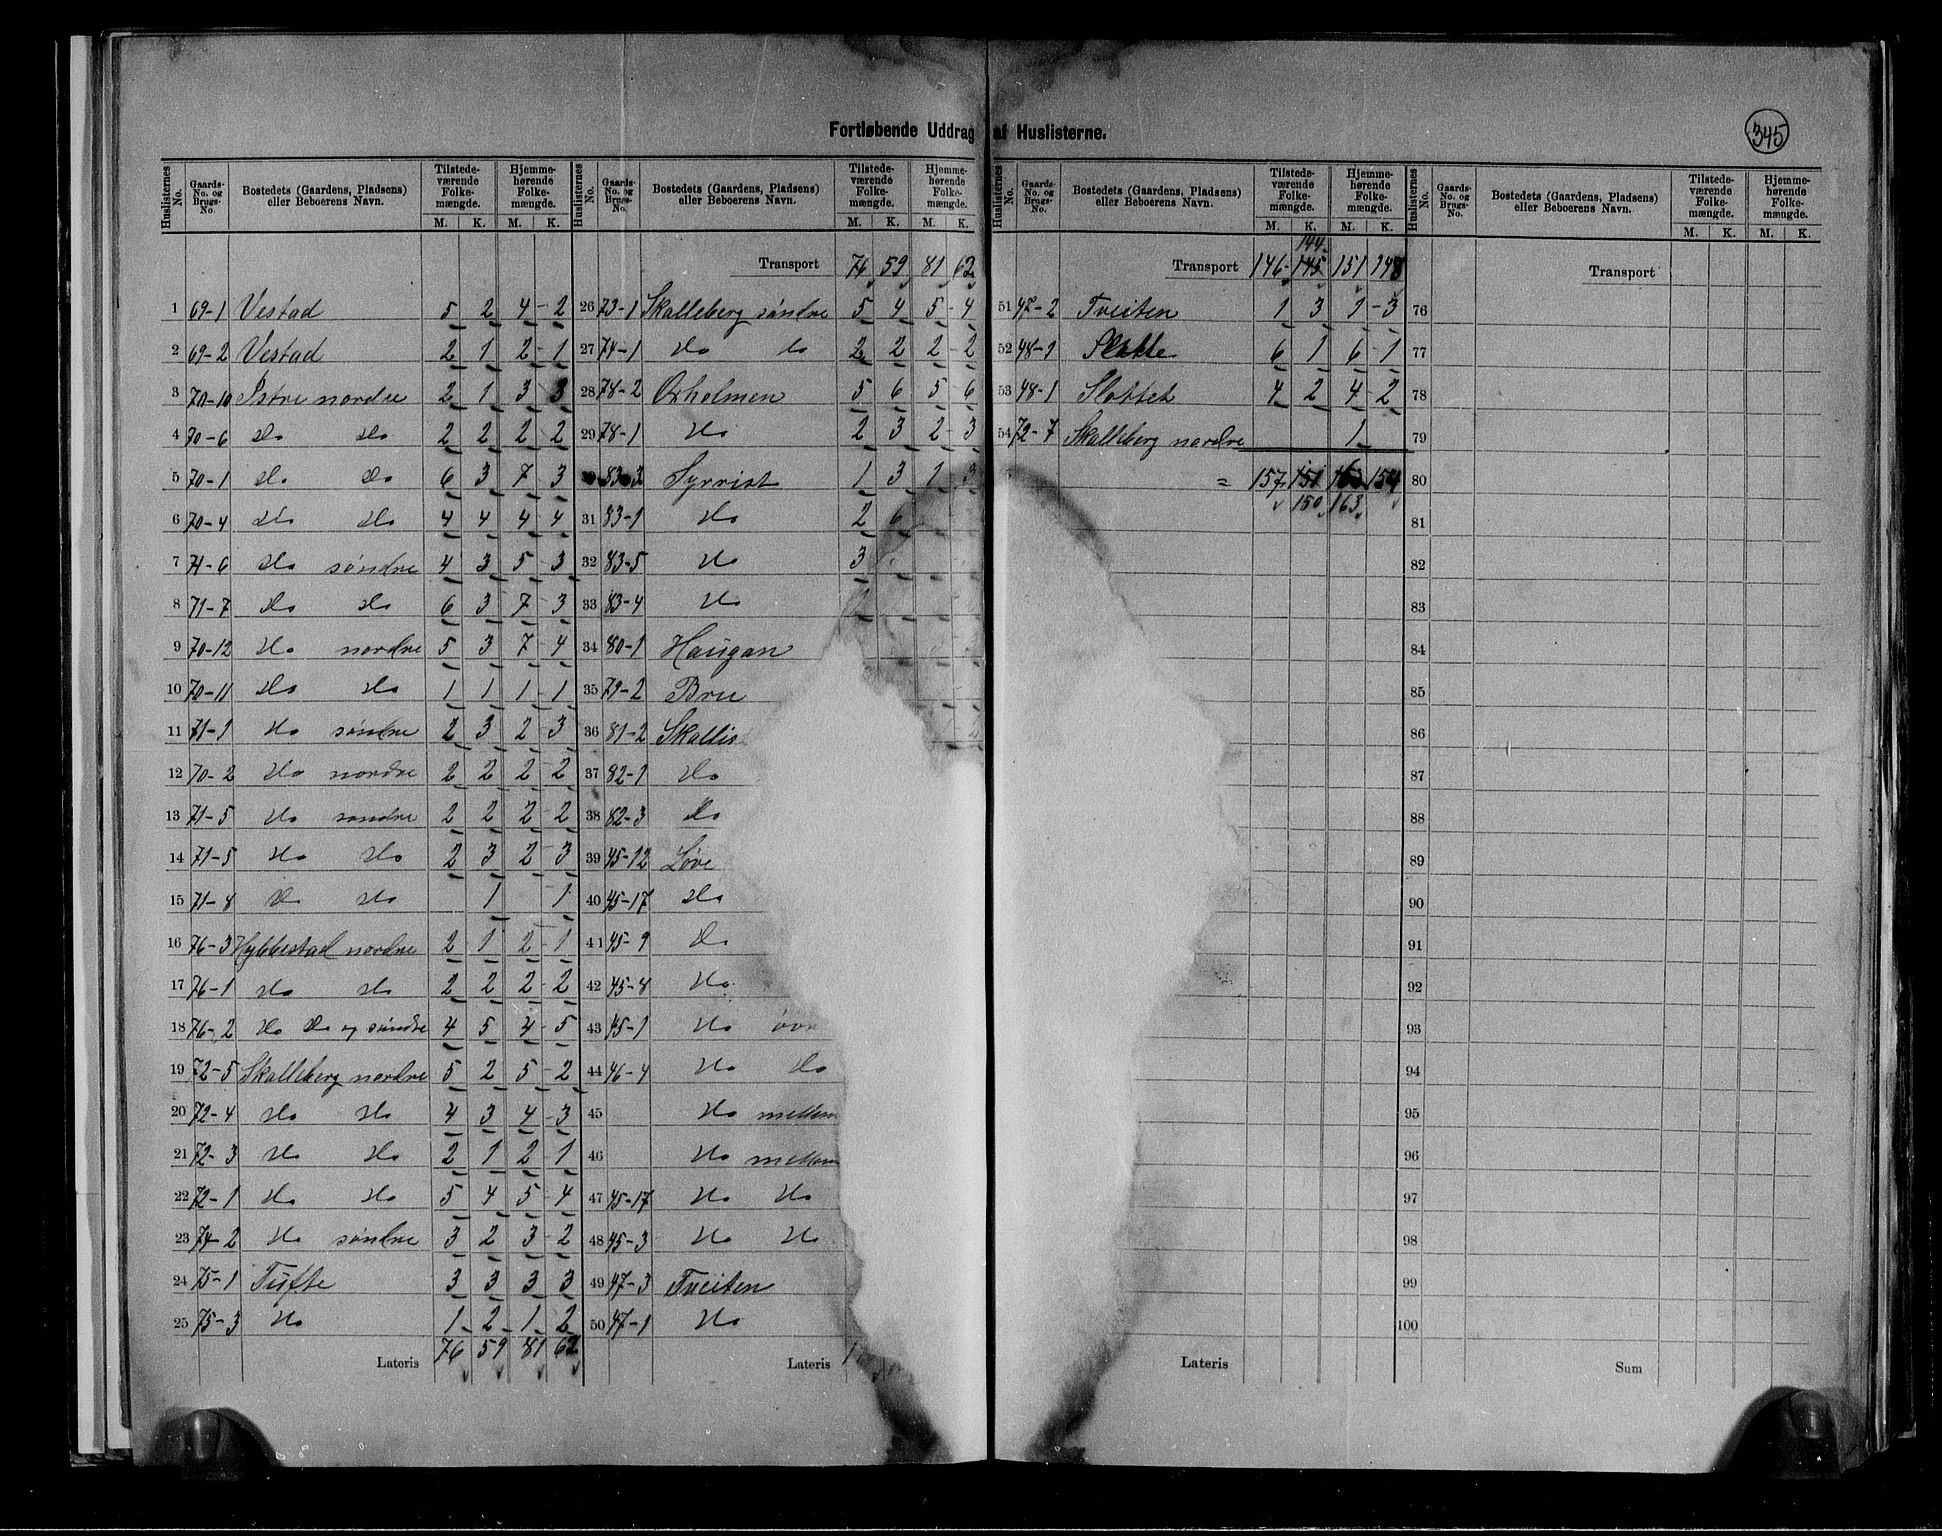 345
Fortløbende Uddrag af Huslisterne.
Huslisternes No. Gaards-No. og Brugs-No. Bostedets (Gaardens, Pladsens) eller Beboerens Navn. Tilstedeværende Folkemængde. Hjemmehørende Folkemængde.
M. K. M. K.
1 69-1 Vestad 5 2 4 2
2 69-2 Vestad 2 1 2 1
3 70-10 Istre nordre 2 1 3 3
4 70-6 Do Do 2 2 2 2
5 70-1 Do Do 6 3 7 3
6 70-4 Do Do 4 4 4 4
7 71-6 Do søndre 4 3 5 3
8 71-7 Do Do 6 3 7 3
9 70-12 Do nordre 5 3 7 4
10 70-11 Do Do 1 1 1 1
11 71-1 Do søndre 2 3 2 3
12 70-2 Do nordre 2 2 2 2
13 71-5 Do søndre 2 2 2 2
14 71-5 Do Do 2 3 2 3
15 71-8 Do Do 1 1
16 76-3 Hybbestad nordre 2 1 2 1
17 76-1 Do Do 2 2 2 2
18 76-2 Do Do og søndre 4 5 4 5
19 72-5 Skalleberg nordre 5 2 5 2
20 72-4 Do Do 4 3 4 3
21 72-3 Do Do 2 1 2 1
22 72-1 Do Do 5 4 5 4
23 74-2 Do søndre 3 2 3 2
24 75-1 Tufte 3 3 3 3
25 75-3 Do 1 2 1 2
Lateris 76 59 81 62
Huslisternes No. Gaards-No. og Brugs-No. Bostedets (Gaardens, Pladsens) eller Beboerens Navn. Tilstedeværende Folkemængde. Hjemmehørende Folkemængde.
M. K. M. K.
Transport 76 59 81 62
26 73-1 Skalleberg søndre 5 4 5 4
27 74-1 Do do 2 2 2 2
28 78-2 Oxholmen 5 6 5 6
29 78-1 Do 2 3 2 3
83-3 Syrrist 1 3 1 3
31 83-1 Do 2 6
32 83-5 Do 3
33 83-4 Do
34 80-1 Haugan
35 79-2 Bru
36 81-2 Skallis
37 82-1 Do
38 82-3 Do
39 45-12 Løve
40 45-17 Do
41 45-9 Do
42 45-8 Do
43 45-1 Do
44 46-4 Do Do
45 Do mellem
46 Do mellem
47 45-17 Do Do
48 45-3 Do Do
49 47-3 Tveiten
50 47-1 Do
Lateris 1
Huslisternes No. Gaards-No. og Brugs-No. Bostedets (Gaardens, Pladsens) eller Beboerens Navn. Tilstedeværende Folkemængde. Hjemmehørende Folkemængde.
M. K. M. K.
144
Transport 146 145 151 148
51 47-2 Tveiten 1 3 1 3
52 48-1 Slotte 6 1 6 1
53 48-1 Slottet 4 2 4 2
54 72-7 Skalleberg nordre 1
= 157 151 163 154
150 163
Lateris
Huslisternes No. Gaards-No. og Brugs-No. Bostedets (Gaardens, Pladsens) eller Beboerens Navn. Tilstedeværende Folkemængde. Hjemmehørende Folkemængde.
M. K. M. K.
Transport
76
77
78
79
80
81
82
83
84
85
86
87
88
89
90
91
92
93
94
95
96
97
98
99
100
Sum